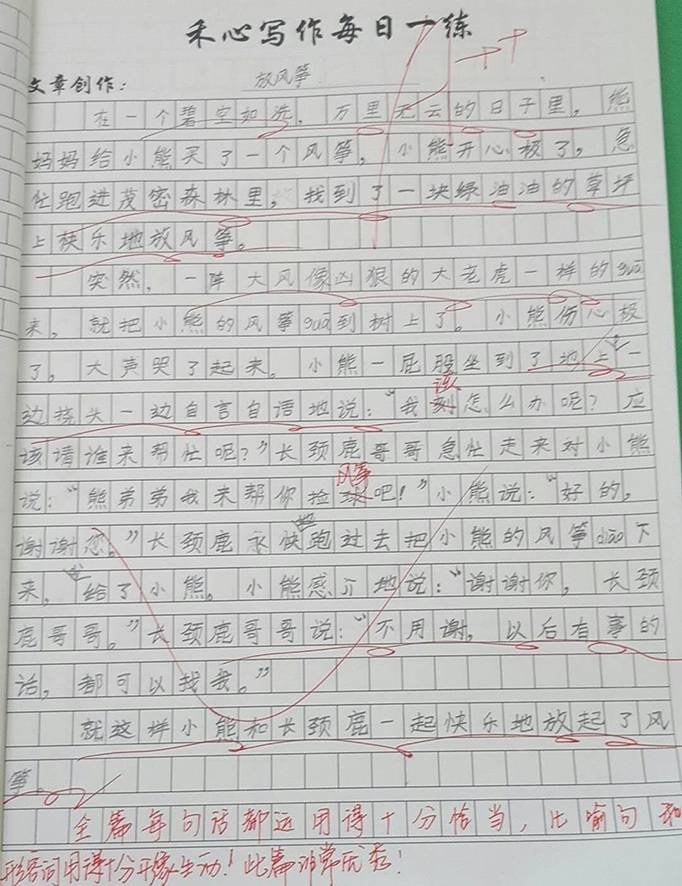 禾心写作每日一练
文章创作: 放风筝
在一个碧空如洗，万里无云的日子里，熊
妈妈给小熊买了一个风筝，小熊开心极了，急
忙跑进茂密森林里，找到了一块绿油油的草坪
上快乐地放风筝。
突然，一阵大风像凶狠的大老虎一样的guā
来，就把小熊的风筝guā到树上了。小熊伤心极
了，大声哭了起来。小熊一屁股坐到了地上一
边挠头一边自言自语地说：“我该怎么办呢？应
该请谁来帮忙呢？”长颈鹿哥哥急忙走来对小熊
说：“熊弟弟我来帮你捡风筝吧！”小熊说：“好的，
谢谢您。”长颈鹿 快地跑过去把小熊的风筝diāo下
来，给了小熊。小熊感 地说：“谢谢你，长颈
鹿哥哥。”长颈鹿哥哥说：“不用谢，以后有事的
话，都可以找我。”
就这样小熊和长颈鹿一起快乐地放起了风
筝。
全篇每句话都运用得十分恰当，比喻句和
形容词用得十分形像生动！此篇非常优秀！